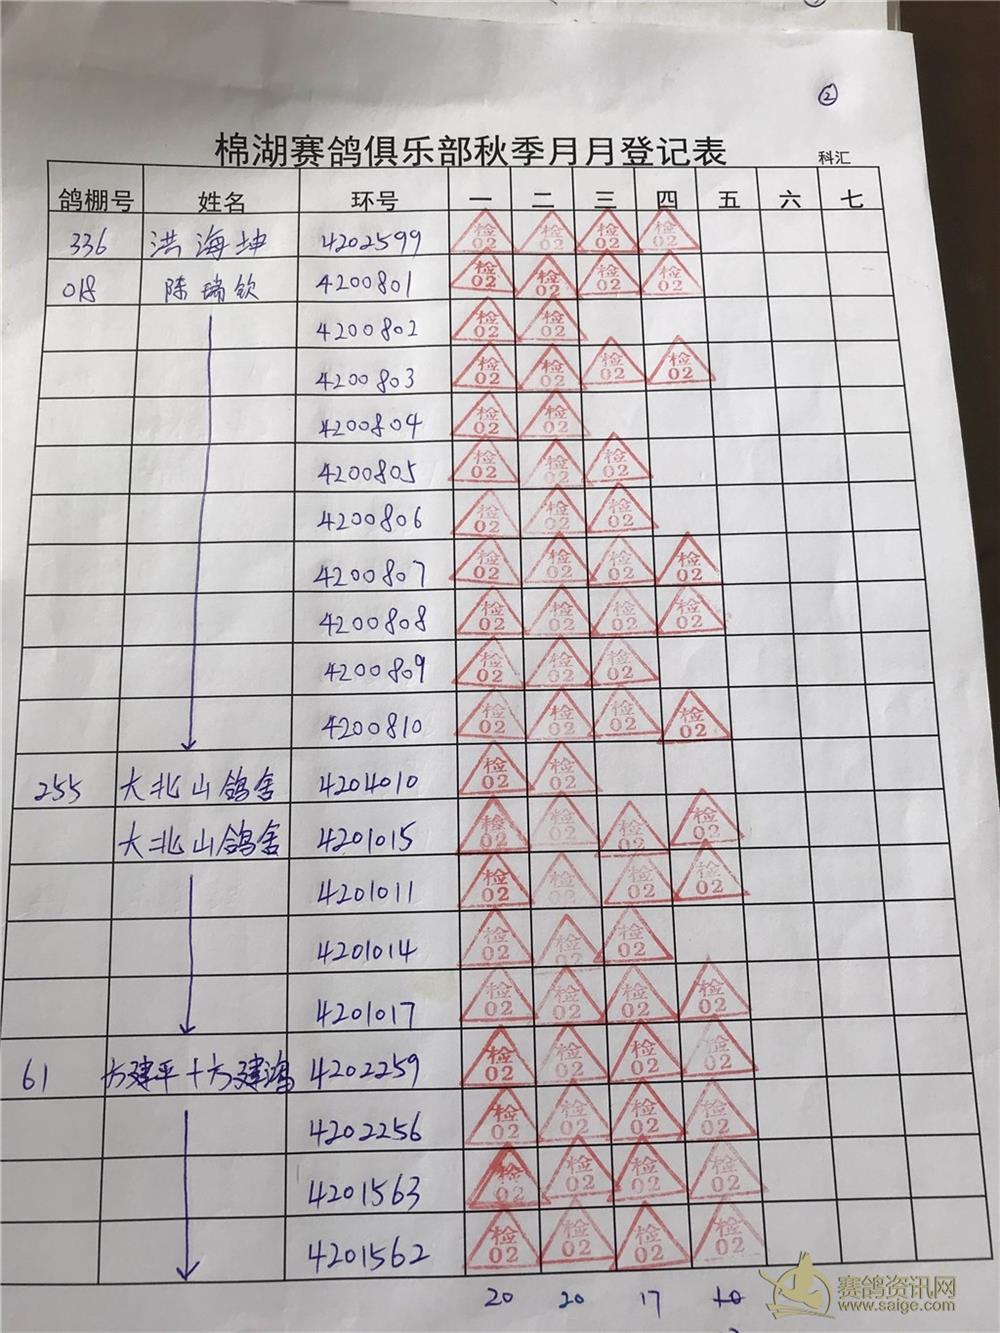 ②
棉湖赛鸽俱乐部秋季月月登记表 科汇
鸽棚号 姓名 环号 一 二 三 四 五 六 七
336 洪海坤 4202599 检02 检02 检02 检02
018 陈瑞钦 4200801 检02 检02 检02 检02
4200802 检02 检02
4200803 检02 检02 检02 检02
4200804 检02 检02
4200805 检02 检02 检02
4200806 检02 检02 检02
4200807 检02 检02 检02 检02
4200808 检02 检02 检02 检02
4200809 检02 检02 检02
4200810 检02 检02 检02 检02
255 大北山鸽舍 4204010 检02 检02
大北山鸽舍 4201015 检02 检02 检02 检02
4201011 检02 检02 检02 检02
4201014 检02 检02 检02
4201017 检02 检02 检02 检02
61 方建平+方建鸿 4202259 检02 检02 检02 检02
4202256 检02 检02 检02 检02
4201563 检02 检02 检02 检02
4201562 检02 检02 检02 检02
20 20 17
赛鸽资讯网
www.saige.com